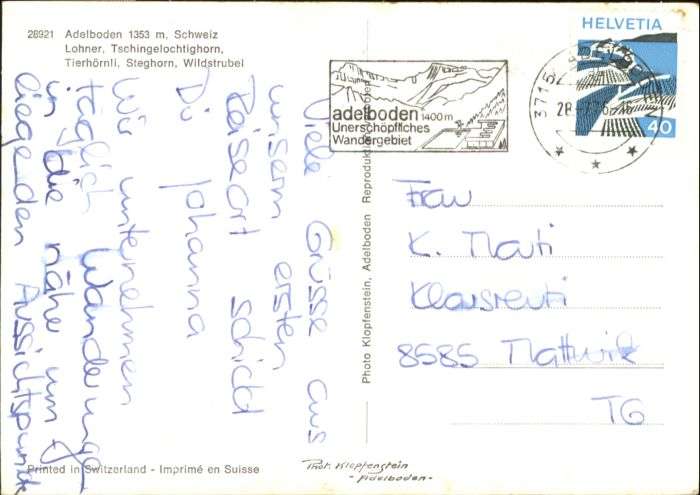 28921 Adelboden 1353 m. Schweiz
Lohner, Tschingelochtighorn,
Tierhörnli, Steghorn, Wildstrubel
HELVETIA
40
3715 ADELBODEN
28.
adelboden 1400m
Unerschöpfliches
Wandergebiet
Viele Grüsse aus
unserm ersten
Reiseort schickt
Dir Johanna
Wir unternehmen
täglich Wanderungen
in die nähe um
liegenden Aussichtspunkte
Photo Klopfenstein, Adelboden Reproduktion verboten
Frau
K. Mati
Klarsreuti
8585 Mattwil
TG
Printed in Switzerland - Imprimé en Suisse
Phot. Klopfenstein
- Adelboden -